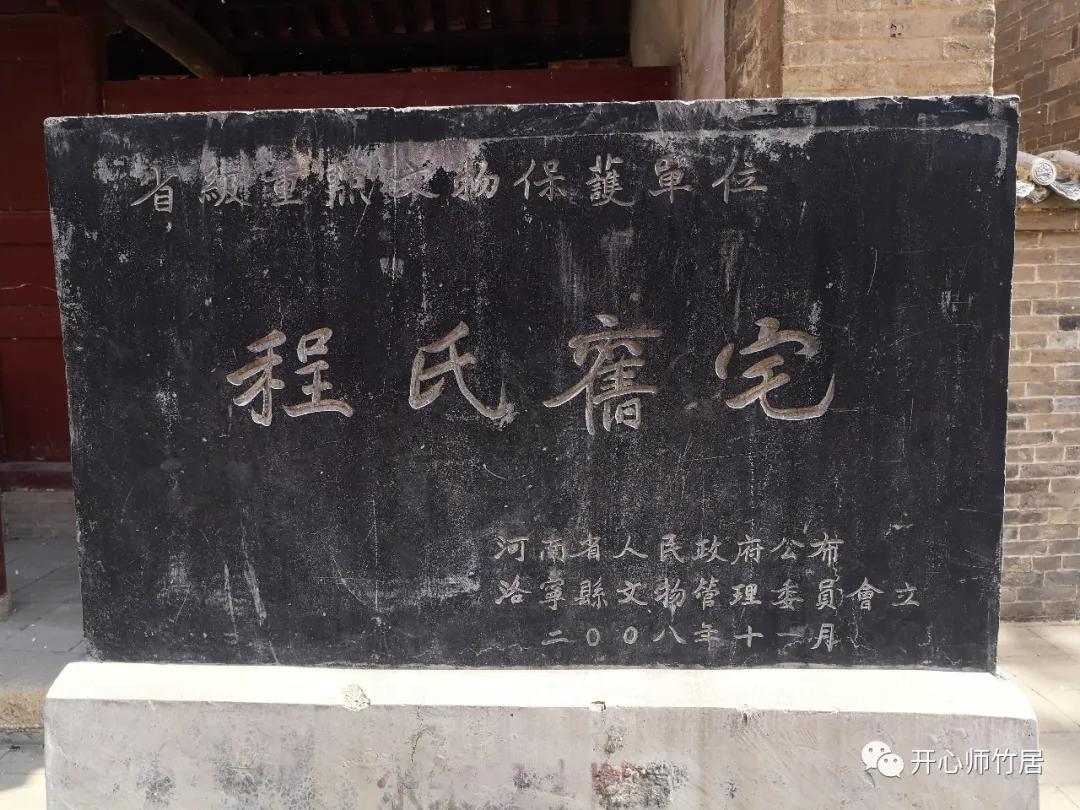 省級重點文物保護單位
程氏舊宅
河南省人民政府公布
洛寧縣文物管理委員會立
二〇〇八年十一月
开心师竹居